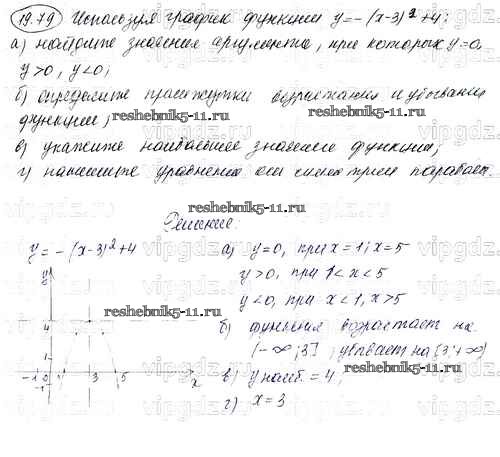 19.79 Используя график функции y = - (x-3)² + 4:
а) найдите значения аргумента, при которых y=0,
y > 0, y < 0;
б) определите промежутки возрастания и убывания
функции;
reshebnik5-11.ru reshebnik5-11.ru
в) укажите наибольшее значение функции;
г) напишите уравнение оси симметрии параболы.
reshebnik5-11.ru
Решение:
y = - (x-3)² + 4
а) y=0, при x=1; x=5
y > 0, при 1 < x < 5
y < 0, при x < 1, x > 5
reshebnik5-11.ru
б) функция возрастает на
(-∞; 3], убывает на [3; +∞)
reshebnik5-11.ru
в) y наиб. = 4;
г) x = 3
y
4
1
-1 0 1 3 5 x
-1
vipgdz.ru